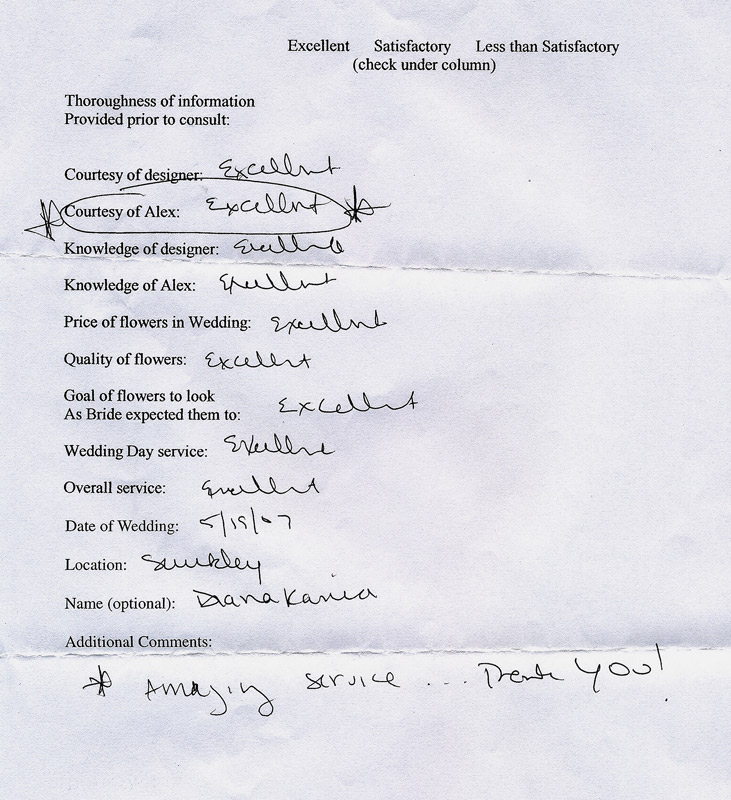 Excellent Satisfactory Less than Satisfactory
(check under column)
Thoroughness of information
Provided prior to consult:
Courtesy of designer: Excellent
Courtesy of Alex: Excellent
Knowledge of designer: Excellent
Knowledge of Alex: Excellent
Price of flowers in Wedding: Excellent
Quality of flowers: Excellent
Goal of flowers to look
As Bride expected them to: Excellent
Wedding Day service: Excellent
Overall service: Excellent
Date of Wedding: 5/19/07
Location:
Name (optional): Diana Kania
Additional Comments:
* Amazing service ... Thank You!